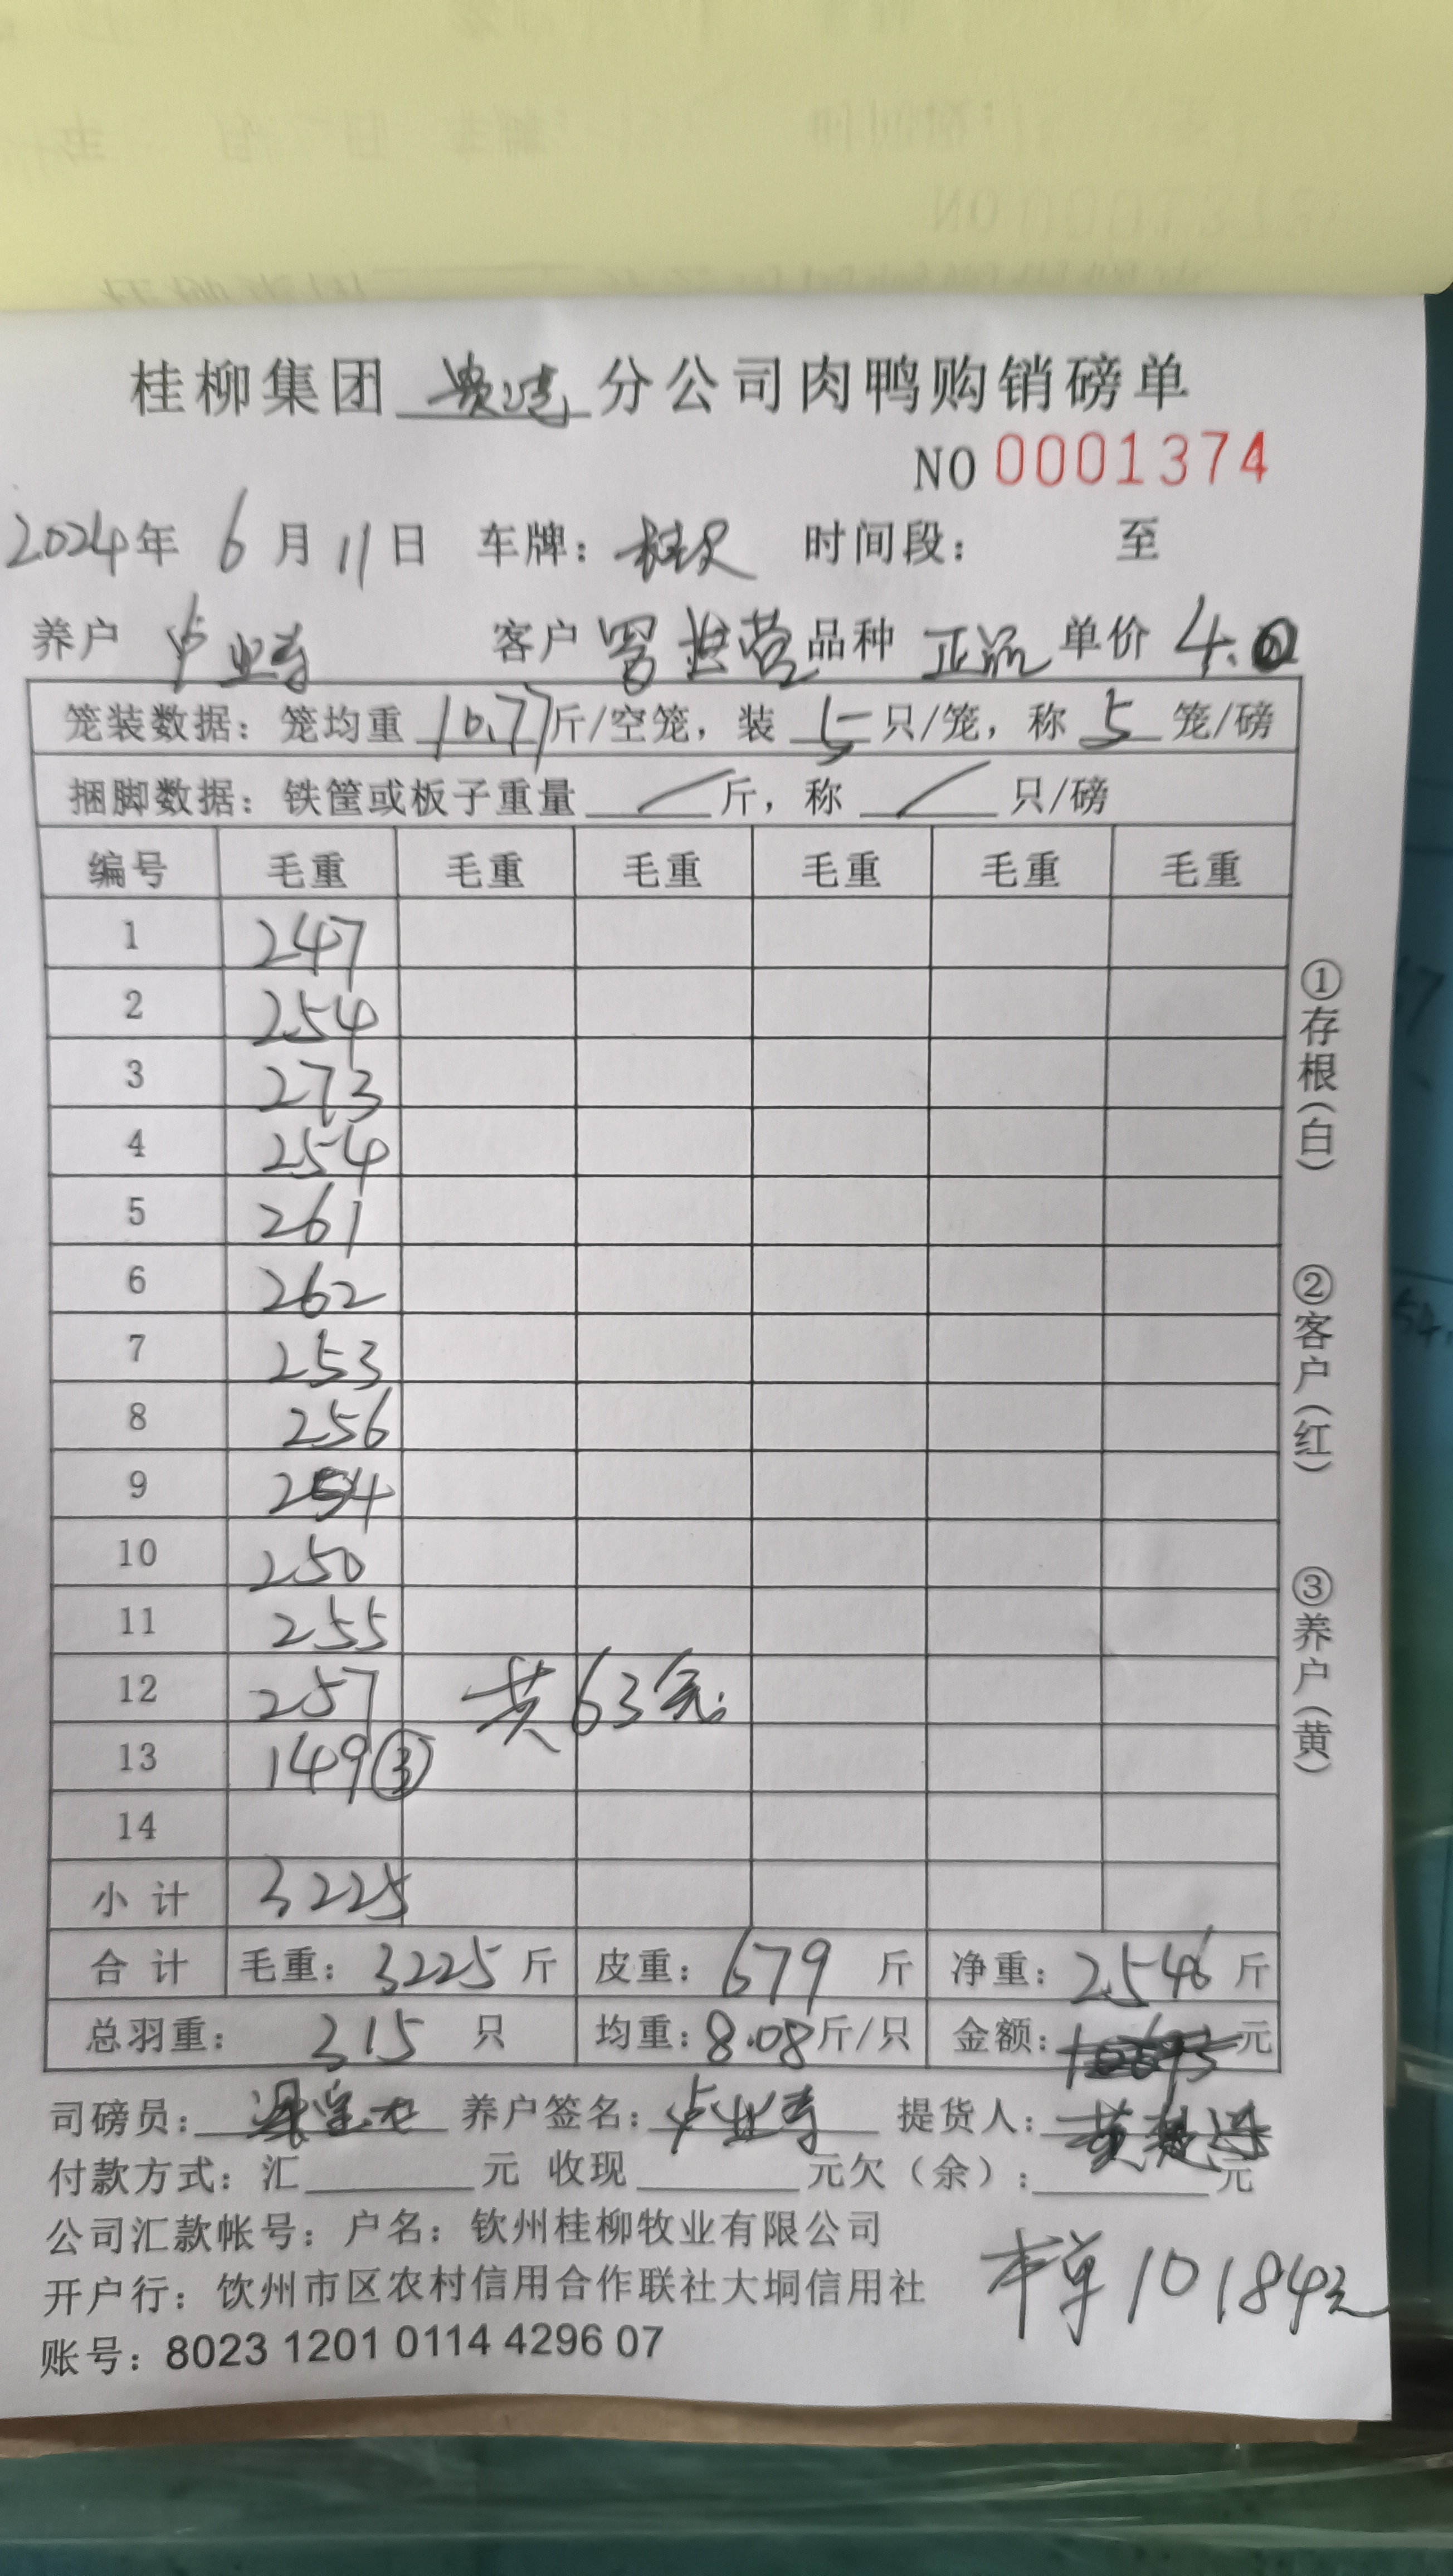 桂柳集团 贵港 分公司肉鸭购销磅单
NO 0001374
2024年 6月11日 车牌： 时间段： 至
养户 卢业寿 客户 罗 营 品种 正品 单价 4.0
笼装数据：笼均重 10.77 斤/空笼，装 5 只/笼，称 5 笼/磅
捆脚数据：铁筐或板子重量 / 斤，称 / 只/磅
编号 毛重 毛重 毛重 毛重 毛重 毛重
1 247
2 254
3 273
4 254
5 261
6 262
7 253
8 256
9 254
10 250
11 255
12 257 共63笼
13 149③
14
小计 3225
合计 毛重：3225斤 皮重：679斤 净重：2546斤
总羽重：315 只 均重：8.08斤/只 金额： 元
司磅员： 养户签名：卢业寿 提货人：黄
付款方式：汇 元 收现 元欠（余）： 元
公司汇款帐号：户名：钦州桂柳牧业有限公司
开户行：饮州市区农村信用合作联社大垌信用社
本单10184元
账号：8023 1201 0114 4296 07
①存根（白）
②客户（红）
③养户（黄）